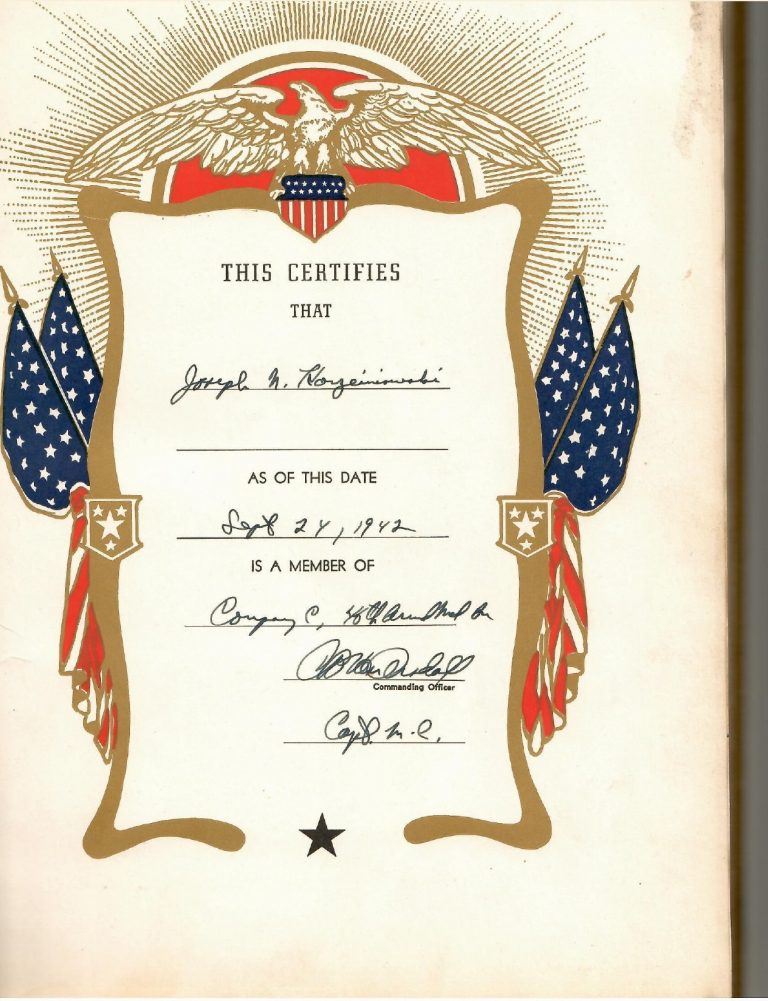 THIS CERTIFIES
THAT
Joseph N. Korzeniowski
AS OF THIS DATE
Sept 24, 1942
IS A MEMBER OF
Company C, 46th Armd Med Bn
Commanding Officer
Capt. M.C.